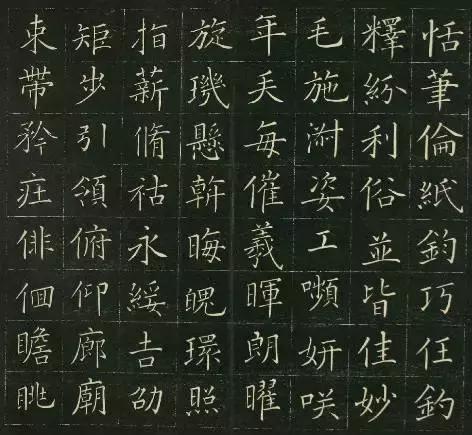 恬筆倫紙鈞巧任釣
釋紛利俗並皆佳妙
毛施淑姿工嚬妍咲
年矢每催羲暉朗曜
旋璣懸斡晦魄環照
指薪脩祜永綏吉劭
矩步引領俯仰廊廟
束帶矜庄俳佪瞻眺